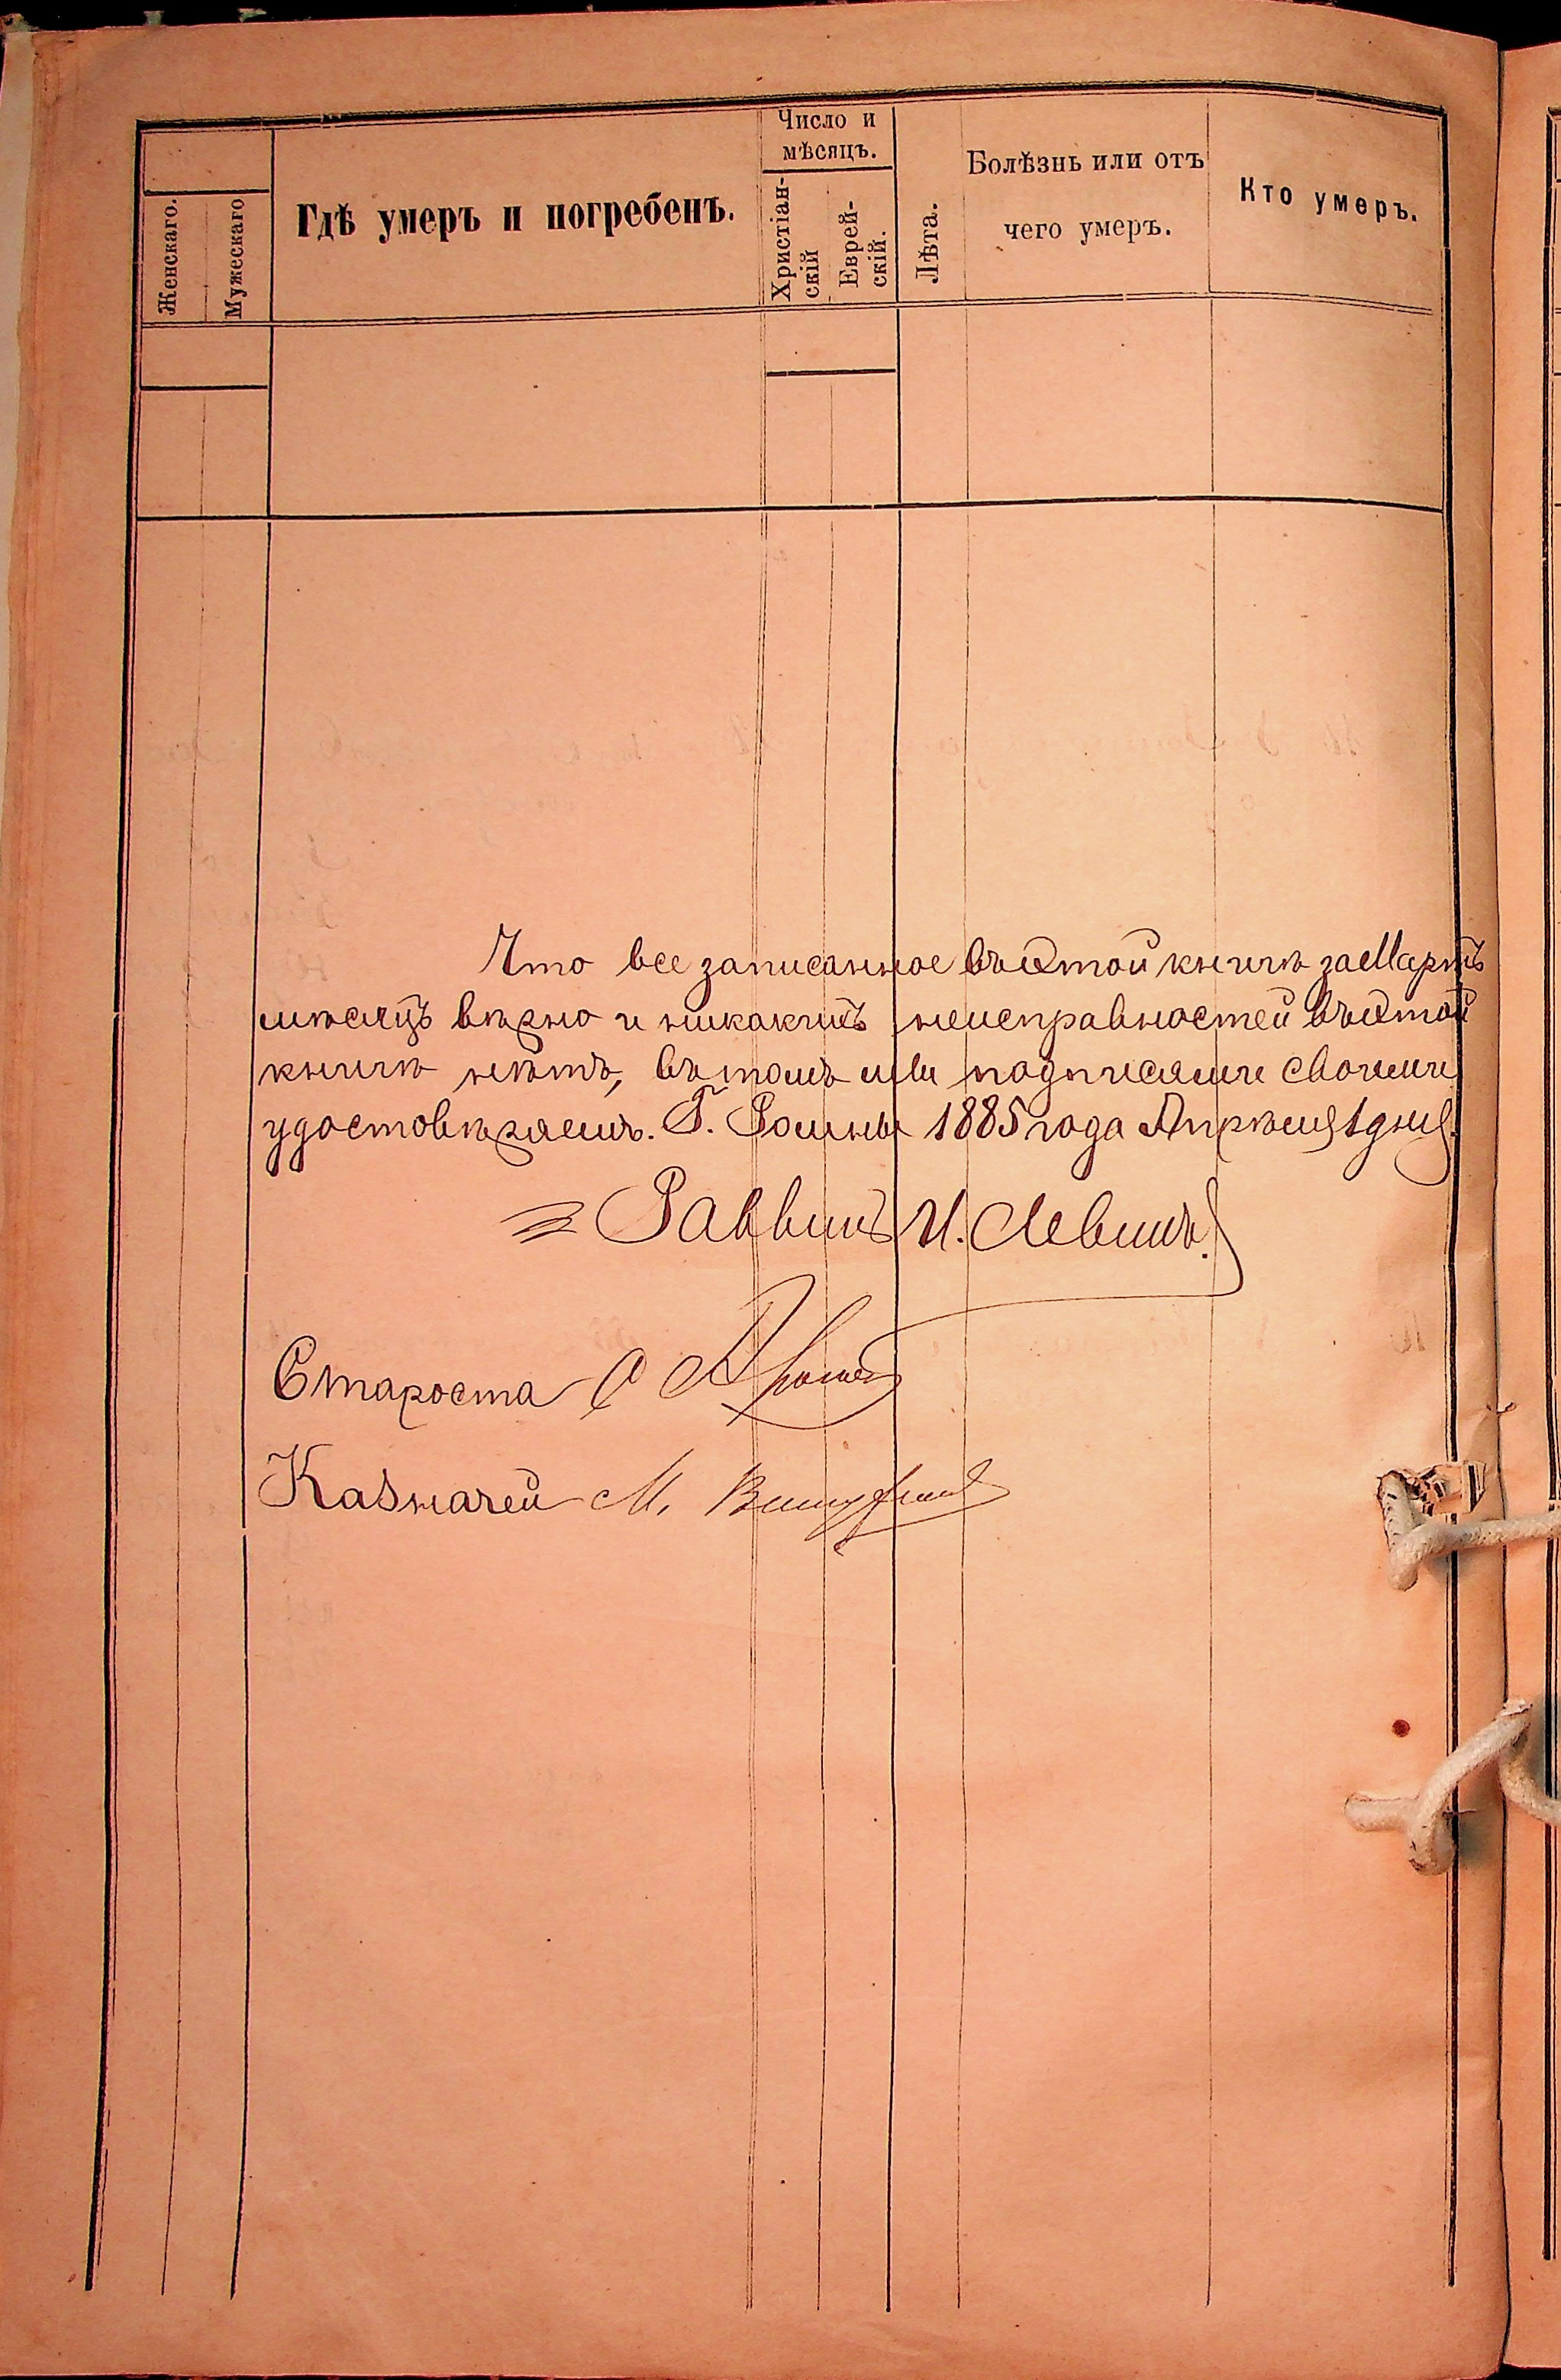 Женскаго.
Мужескаго
Гдѣ умеръ и погребенъ.
Число и
мѣсяцъ.
Христіан-
скій
Еврей-
скій.
Лѣта.
Болѣзнь или отъ
чего умеръ.
Кто умеръ.
Что все записанное въ этой книгѣ за Мартъ
мѣсяцъ вѣрно и никакихъ неисправностей въ этой
книгѣ нѣтъ, въ томъ мы подписями своими
удостовѣряемъ. Г. Ромны 1885 года Апрѣля 1 дня.
Раввинъ И. Левинъ.
Староста
Казначей М.